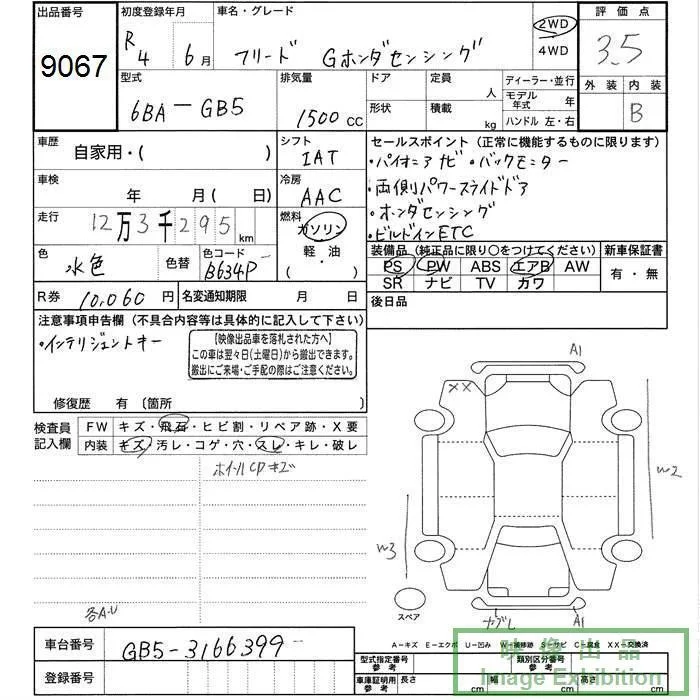 出品番号
9067
初度登録年月
R4 6月
車名・グレード
フリード Gホンダセンシング
2WD
4WD
評価点
3.5
外装 内装
B
型式
6BA-GB5
排気量
1500 CC
ドア
形状
定員 人
積載 kg
ディーラー・並行
モデル年式 年
ハンドル 左・右
車歴
自家用・( )
シフト
IAT
セールスポイント (正常に機能するものに限ります)
・パイオニアナビ・バックモニター
・両側パワースライドドア
・ホンダセンシング
・ビルドインETC
車検
年 月(日)
冷房
AAC
走行
12万3千295km
燃料
ガソリン
軽・油
( )
色
水色
色替
色コード
B634P
装備品 (純正品に限り○をつけてください)
PS PW ABS エアB AW
SR ナビ TV カワ
新車保証書
有・無
R券 10,060円
名変通知期限 月 日
後日品
注意事項申告欄 (不具合内容等は具体的に記入して下さい)
・インテリジェントキー
【映像出品車を落札された方へ】
この車は翌々日(土曜日)から搬出できます。
搬出にご来場・ご手配の際はご注意ください。
修復歴 有 〔箇所 〕
検査員記入欄
FW キズ・飛石・ヒビ割・リペア跡・X要
内装 キズ・汚レ・コゲ・穴・スレ・キレ・破レ
ホイールCDキズ
各A-U
A1
XX
W2
W3
スペア
A1
A-キズ E-エクボ U-凹み W-補修跡 S-サビ C-腐食 XX-交換済
車台番号
GB5-3166399
登録番号
型式指定番号
参考
類別区分番号
参考
車庫証明用
参考
長さ cm
幅 cm
高さ cm
映像出品
Image Exhibition